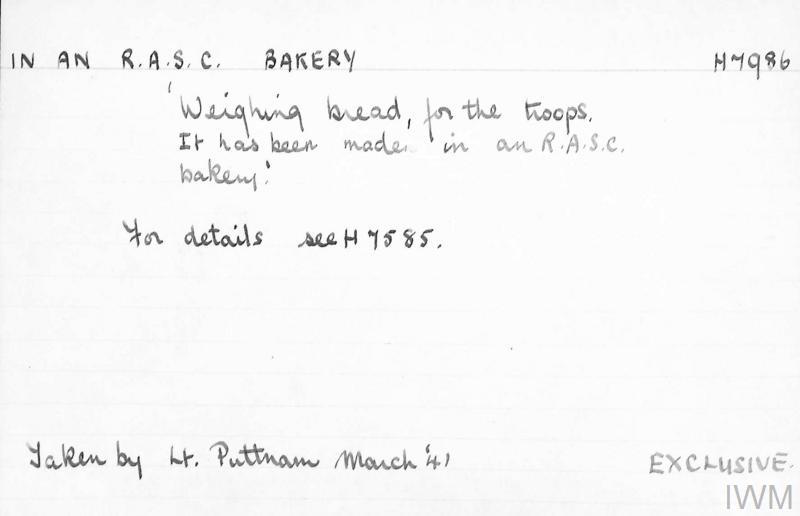 IN AN R.A.S.C. BAKERY H7986
'Weighing bread, for the troops.
It has been made in an R.A.S.C.
bakery.'
For details see H 7585.
Taken by Lt. Puttnam March '41
EXCLUSIVE.
IWM